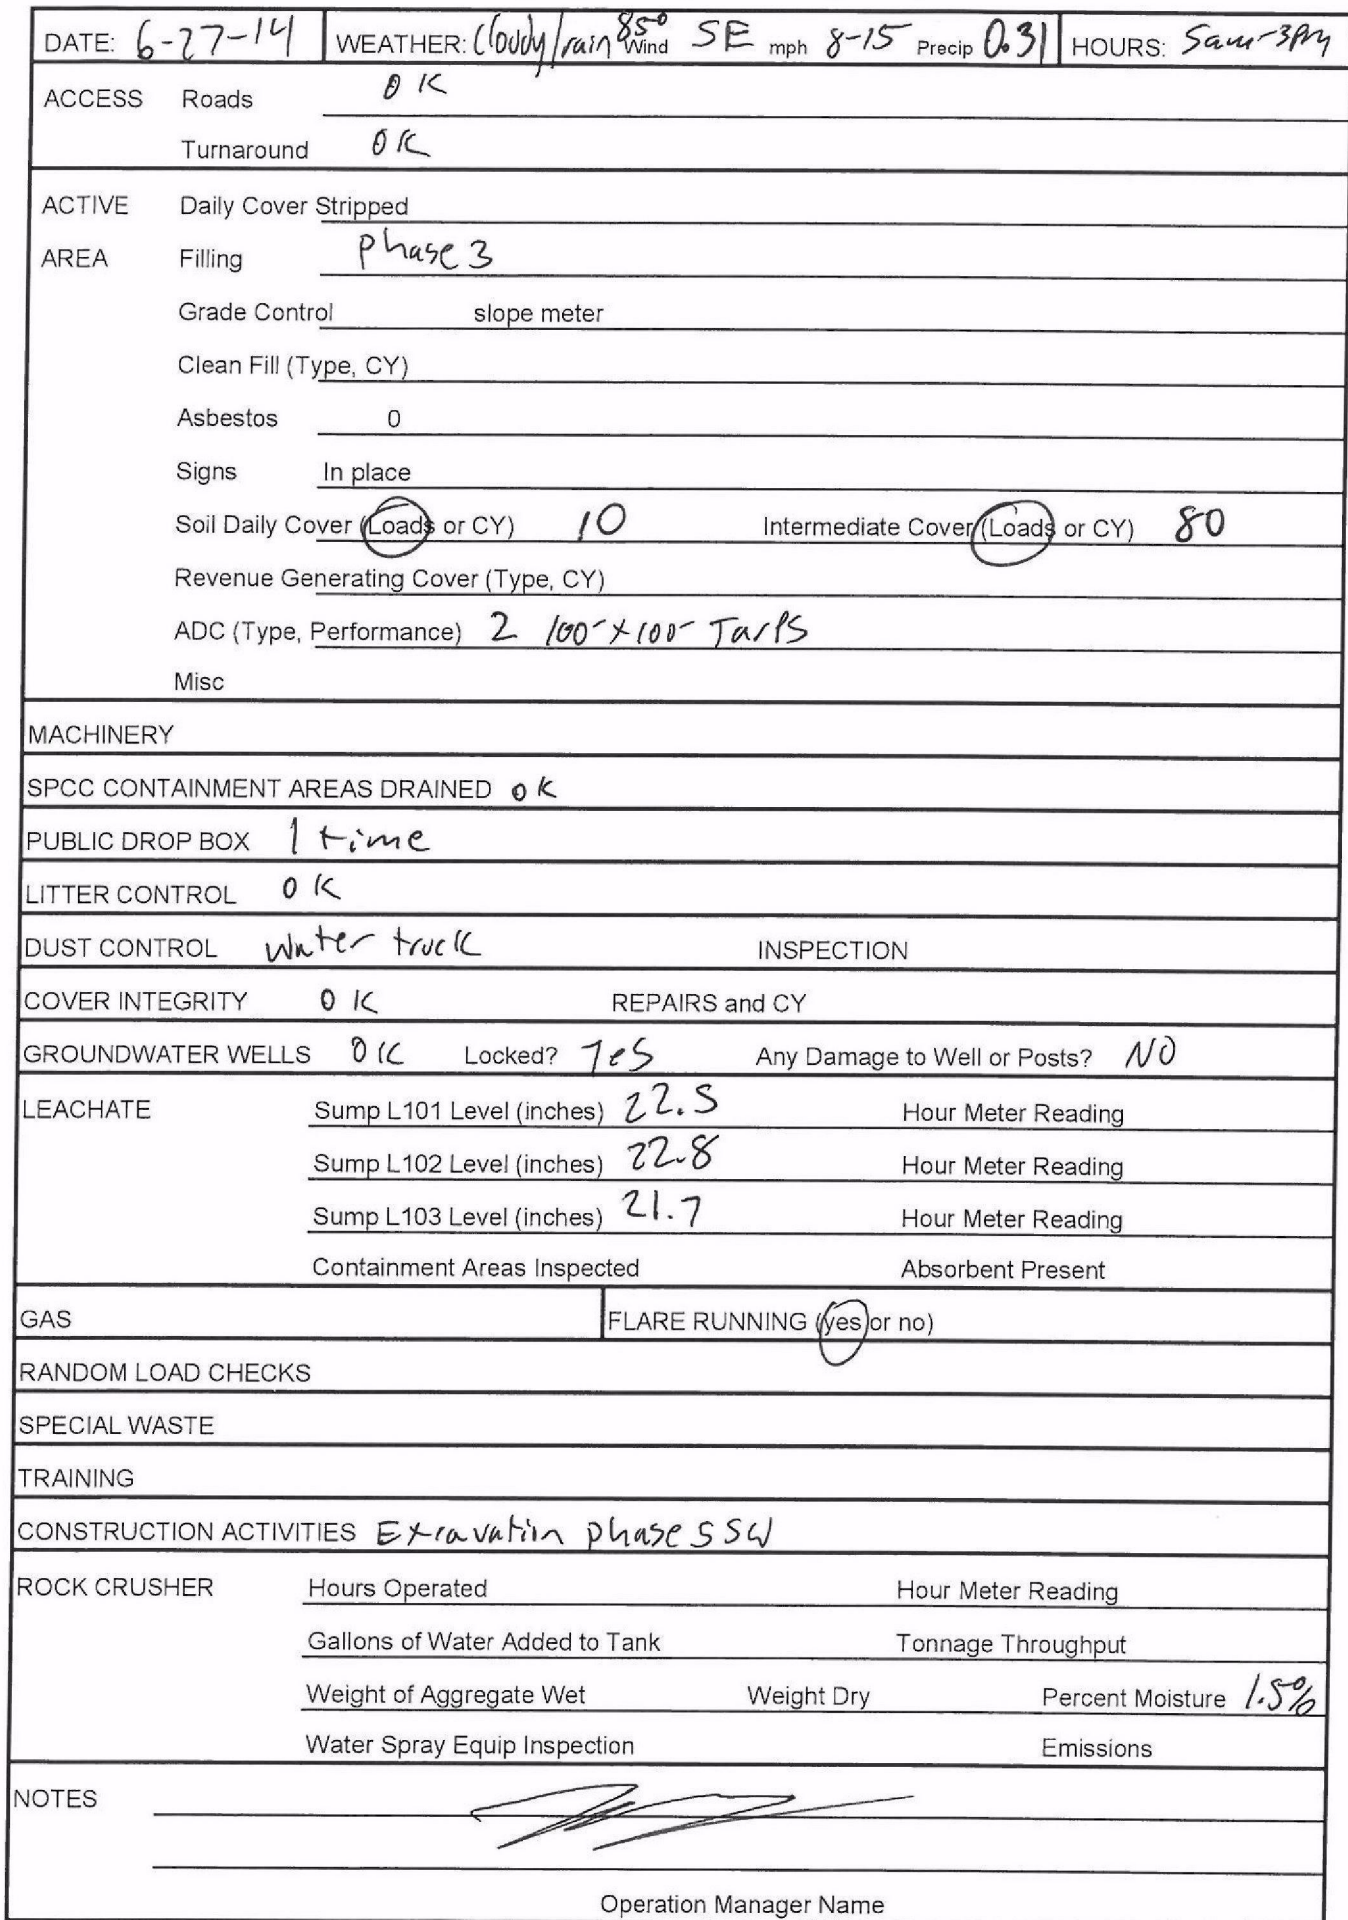 DATE: 6-27-14 WEATHER: Cloudy/rain 85° Wind SE mph 8-15 Precip 0.31 HOURS: 5am-3pm
ACCESS Roads OK
Turnaround OK
ACTIVE Daily Cover Stripped
AREA Filling Phase 3
Grade Control slope meter
Clean Fill (Type, CY)
Asbestos 0
Signs In place
Soil Daily Cover (Loads or CY) 10 Intermediate Cover (Loads or CY) 80
Revenue Generating Cover (Type, CY)
ADC (Type, Performance) 2 100'x100' Tarps
Misc
MACHINERY
SPCC CONTAINMENT AREAS DRAINED OK
PUBLIC DROP BOX 1 time
LITTER CONTROL OK
DUST CONTROL Water truck INSPECTION
COVER INTEGRITY OK REPAIRS and CY
GROUNDWATER WELLS OK Locked? Yes Any Damage to Well or Posts? NO
LEACHATE Sump L101 Level (inches) 22.5 Hour Meter Reading
Sump L102 Level (inches) 22.8 Hour Meter Reading
Sump L103 Level (inches) 21.7 Hour Meter Reading
Containment Areas Inspected Absorbent Present
GAS FLARE RUNNING (yes or no)
RANDOM LOAD CHECKS
SPECIAL WASTE
TRAINING
CONSTRUCTION ACTIVITIES Excavation phase 5 SW
ROCK CRUSHER Hours Operated Hour Meter Reading
Gallons of Water Added to Tank Tonnage Throughput
Weight of Aggregate Wet Weight Dry Percent Moisture 1.5%
Water Spray Equip Inspection Emissions
NOTES
Operation Manager Name